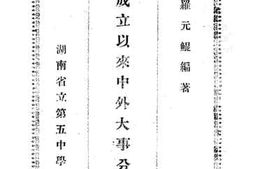 羅元鯤編著
成立以來中外大事分
湖南省立第五中學